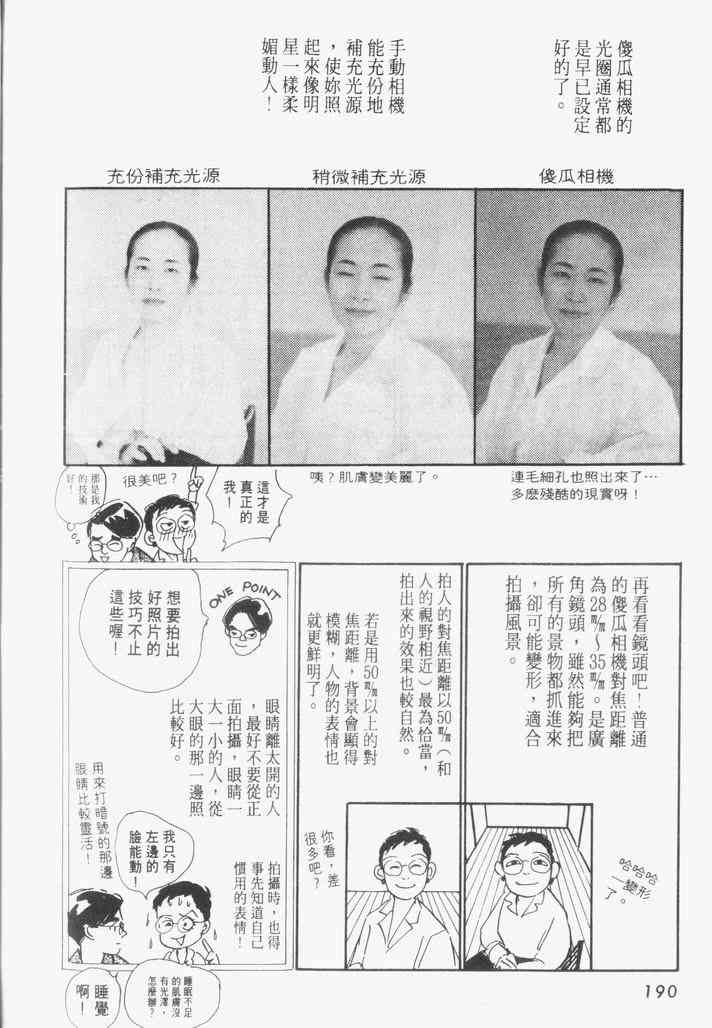 傻瓜相機的
光圈通常都
是早已設定
好的了。
手動相機
能充份地
補充光源
，使妳照
起來像明
星一樣柔
媚動人！
傻瓜相機
稍微補充光源
充份補充光源
連毛細孔也照出來了…
多麽殘酷的現實呀！
咦？肌膚變美麗了。
這才是
真正的
我！
很美吧？
那是我
的技術
好！
再看看鏡頭吧！普通
的傻瓜相機對焦距離
為28㎜～35㎜。是廣
角鏡頭，雖然能夠把
所有的景物都抓進來
，卻可能變形，適合
拍攝風景。
哈哈哈
一變形
了。
拍人的對焦距離以50㎜（和
人的視野相近）最為恰當，
拍出來的效果也較自然。
若是用50㎜以上的對
焦距離，背景會顯得
模糊，人物的表情也
就更鮮明了。
你看，差
很多吧？
ONE POINT
想要拍出
好照片的
技巧不止
這些喔！
眼睛離太開的人
，最好不要從正
面拍攝，眼睛一
大一小的人，從
大眼的那一邊照
比較好。
拍攝時，也得
事先知道自己
慣用的表情！
我只有
左邊的
臉能動！
用來打暗號的那邊
眼睛比較靈活！
睡眠不足
的肌膚沒
有光澤，
怎麼辦？
睡覺
啊！
190